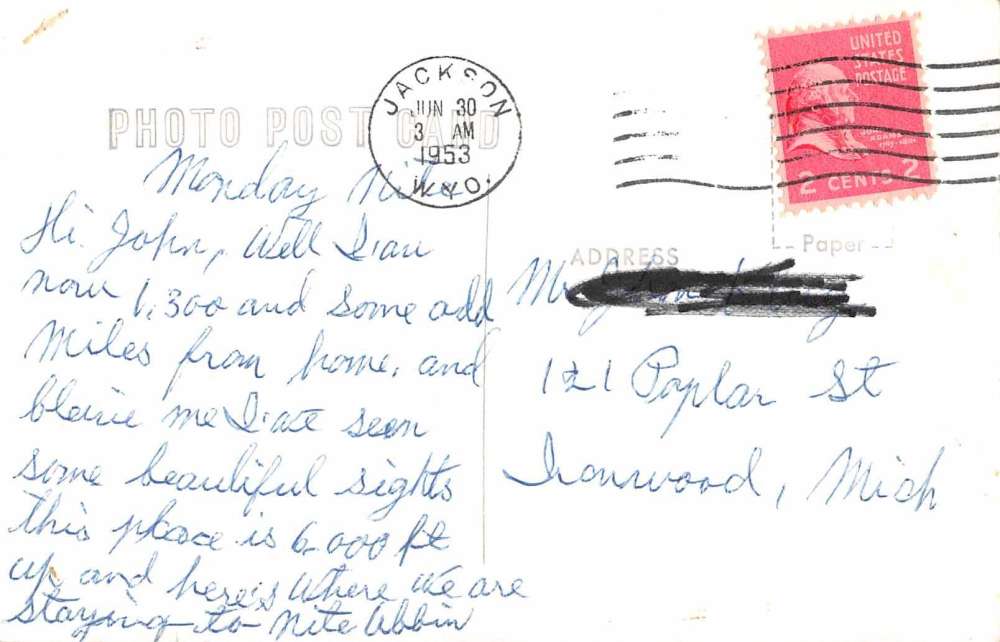 PHOTO POST CARD
JACKSON
JUN 30
3 AM
1953
WYO.
UNITED
STATES
POSTAGE
2 CENTS 2
Paper
ADDRESS
Monday Nite
Hi John, Well I'am
now 1,300 and some odd
Miles from home, and
bleive me I've seen
some beautiful sights
this place is 6,000 ft
up and here's where we are
staying to nite
Mr John
121 Poplar St
Ironwood, Mich